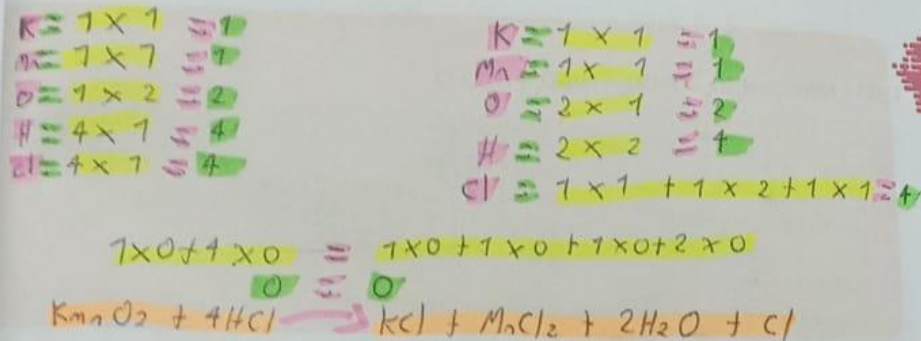 K = 1 × 1 = 1
Mn = 1 × 1 = 1
O = 1 × 2 = 2
H = 4 × 1 = 4
Cl = 4 × 1 = 4
K = 1 × 1 = 1
Mn = 1 × 1 = 1
O = 2 × 1 = 2
H = 2 × 2 = 4
Cl = 1 × 1 + 1 × 2 + 1 × 1 = 4
1×0+4×0 = 1×0+1×0+1×0+2×0
0 = 0
KmnO2 + 4HCl → kCl + MnCl2 + 2H2O + Cl